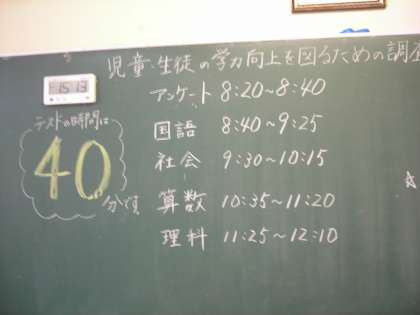 児童・生徒の学力向上を図るための調査
アンケート 8:20~8:40
国語 8:40~9:25
社会 9:30~10:15
算数 10:35~11:20
理科 11:25~12:10
15 13
テストの時間は
40
分